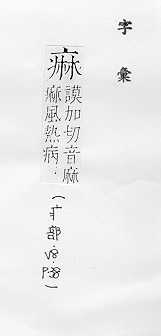 字彙
痳
謨加切音麻
痳風熱病．
（疒部．